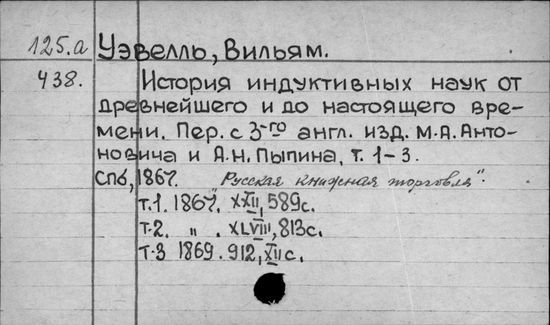 125.а Уэвелль, Вильям.
438. История индуктивных наук от
древнейшего и до настоящего вре-
мени. Пер. с 3-го англ. изд. М.А. Анто-
новича и А.Н. Пыпина, т. 1-3.
Спб, 1867. Русская книжная торговля".
т.1. 1867. XXII, 589с.
т.2. " . XLVIII, 813с.
т.3 1869. 912, XII с.